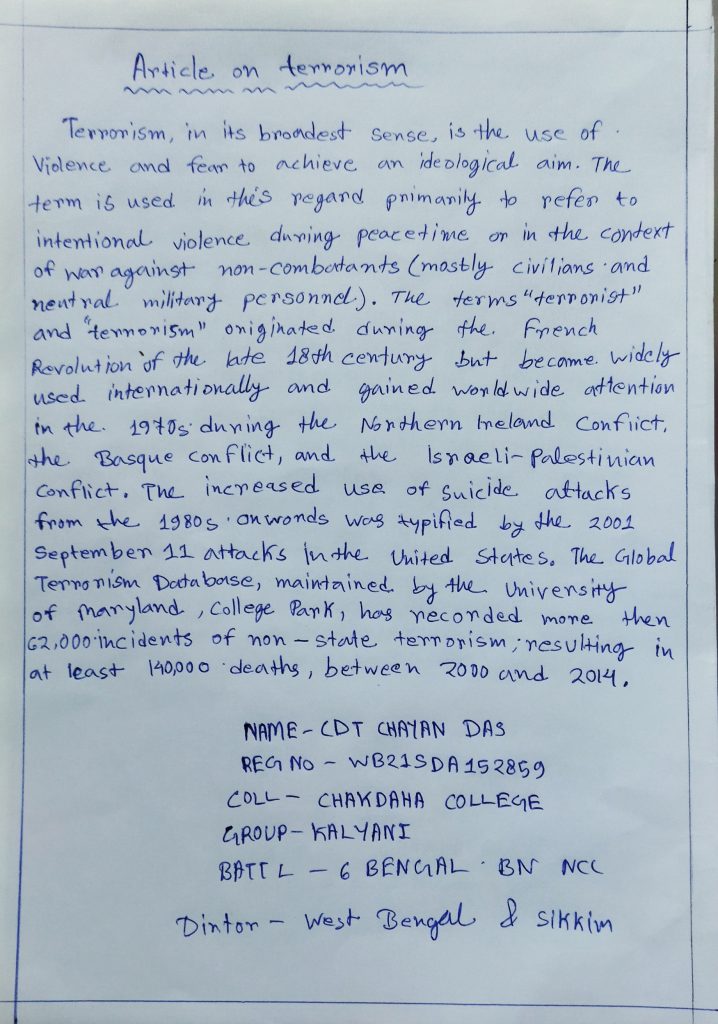 Article on terrorism
Terrorism, in its broadest sense, is the use of
Violence and fear to achieve an ideological aim. The
term is used in this regard primarily to refer to
intentional violence during peacetime or in the context
of war against non-combatants (mostly civilians and
neutral military personnel). The terms "terrorist"
and "terrorism" originated during the French
Revolution of the late 18th century but become widely
used internationally and gained worldwide attention
in the 1970s during the Northern Ireland Conflict,
the Basque conflict, and the Israeli-Palestinian
Conflict. The increased use of suicide attacks
from the 1980s onwords was typified by the 2001
September 11 attacks in the United States. The Global
Terrorism Database, maintained by the University
of Maryland, College Park, has recorded more then
62,000 incidents of non-state terrorism, resulting in
at least 140,000 deaths, between 2000 and 2014.
NAME - CDT CHAYAN DAS
REG NO - WB21SDA152859
COLL - CHAKDAHA COLLEGE
GROUP - KALYANI
BATTL - 6 BENGAL BN NCC
Dintor - West Bengal & Sikkim